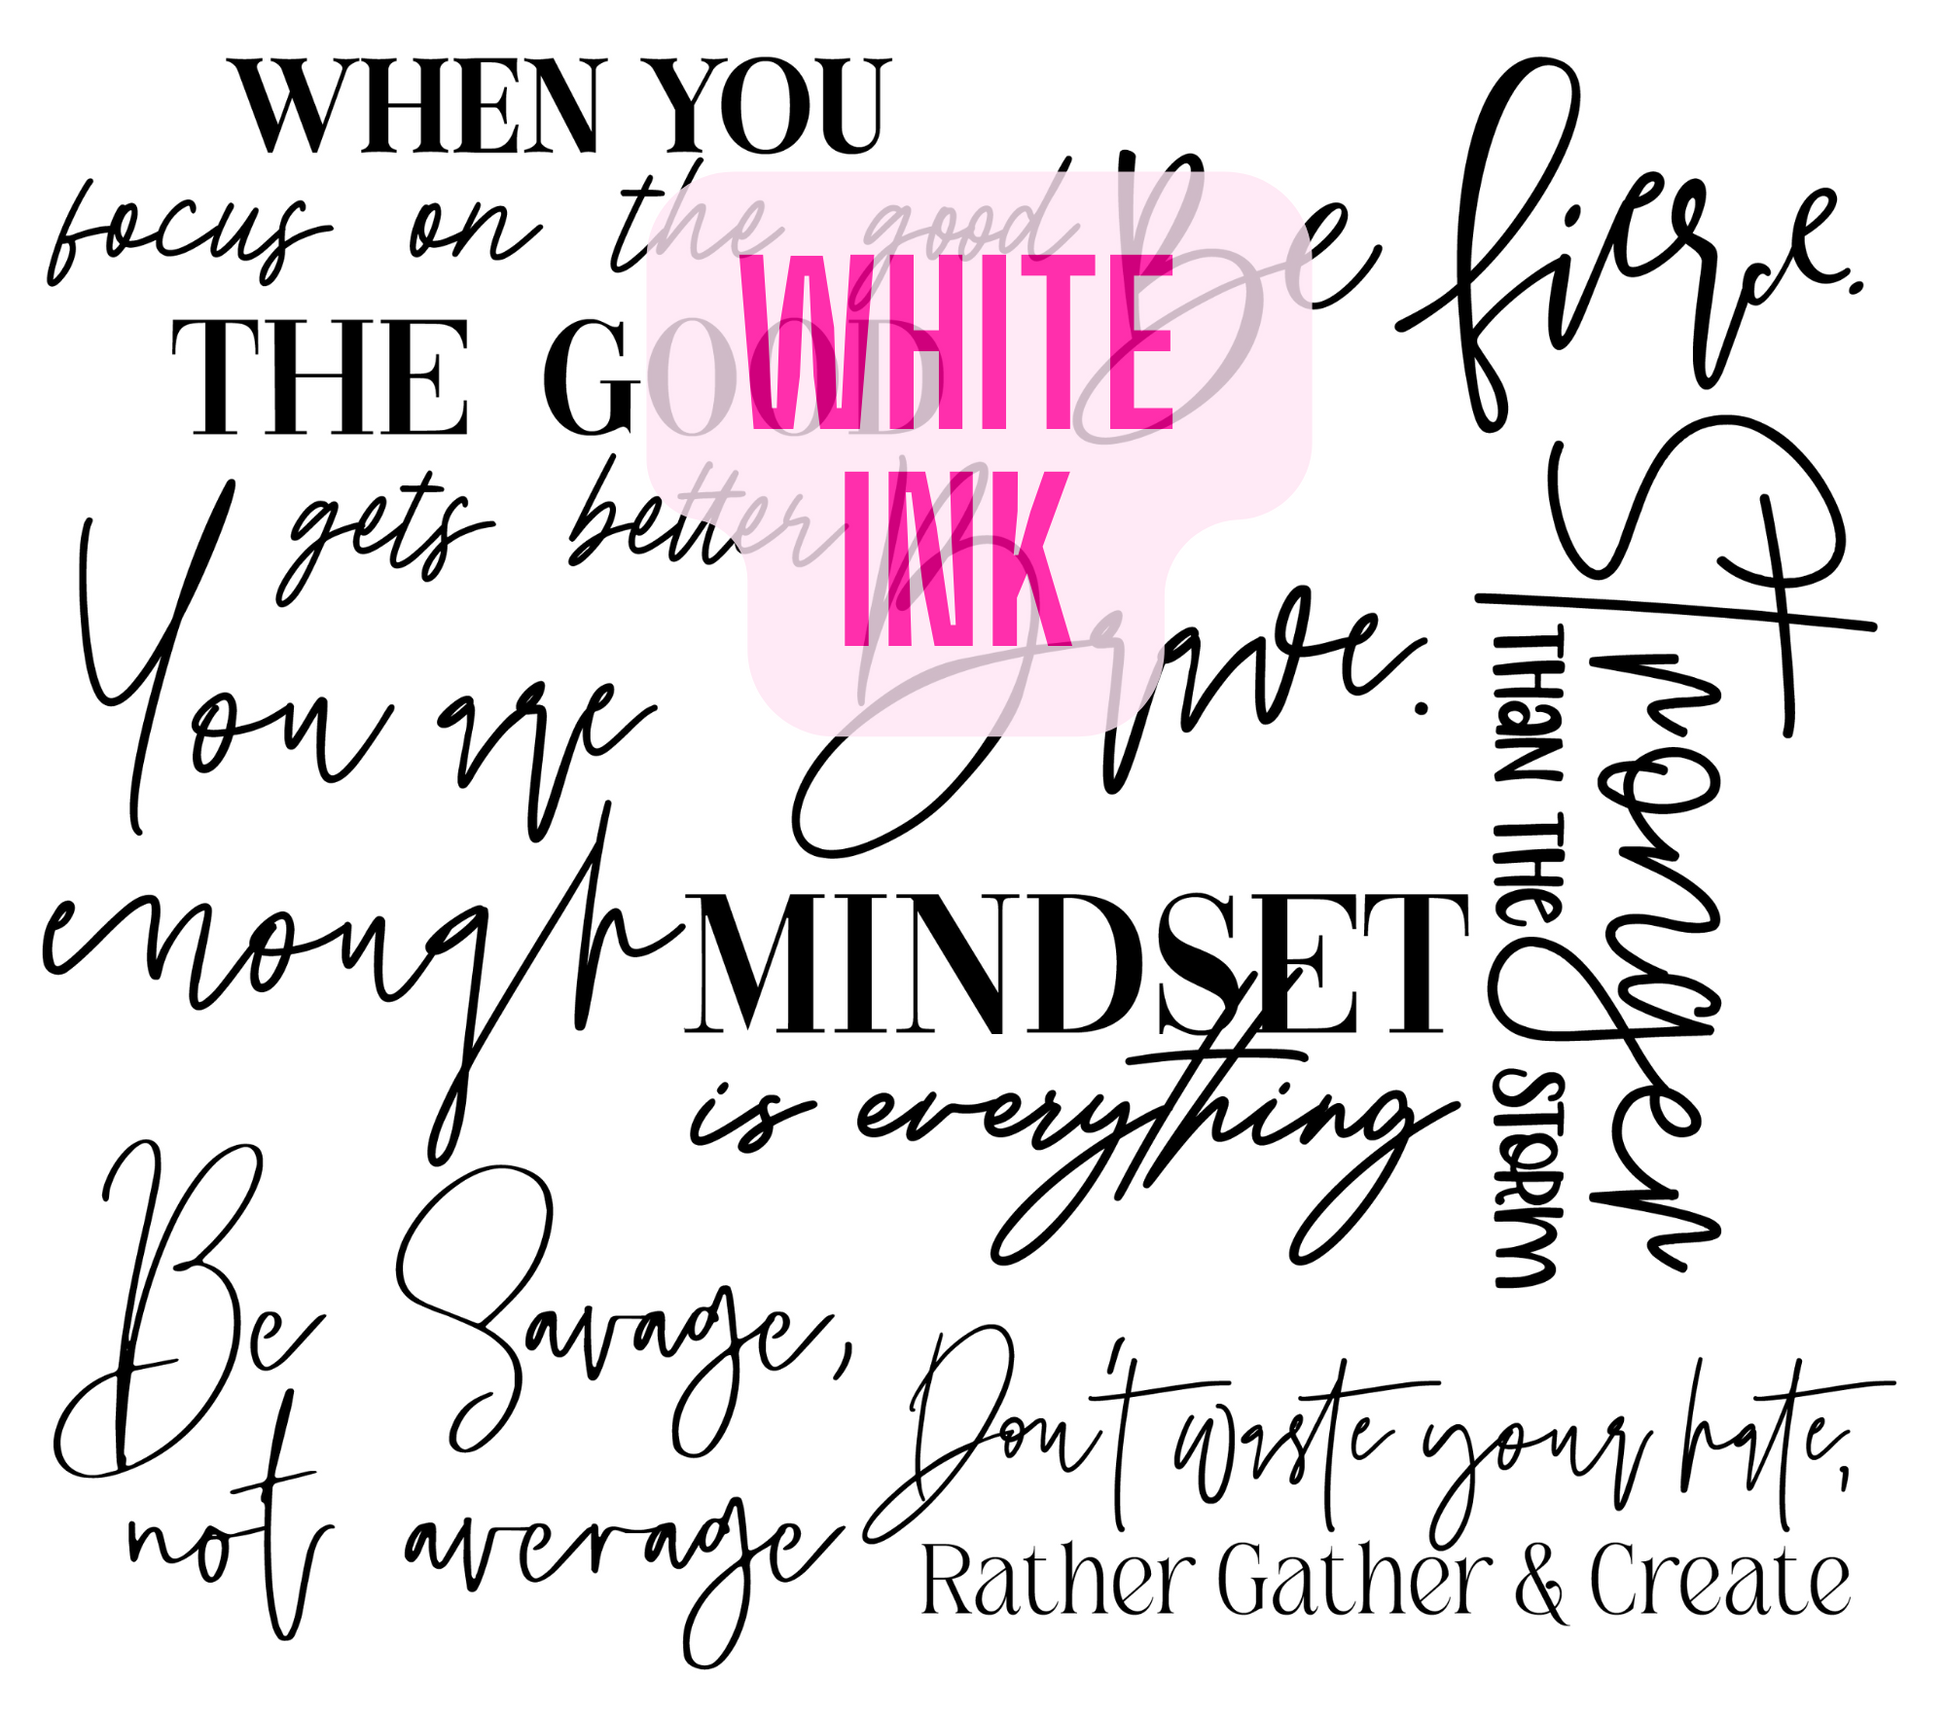 WHEN YOU
focus on the good
THE GOOD
gets better
Be fierce.
WHITE
INK
You are
enough
Brave.
MINDSET
is everything
Stronger
THaN THe STORM
Be Savage,
not average
Don't waste your hate,
Rather Gather & Create